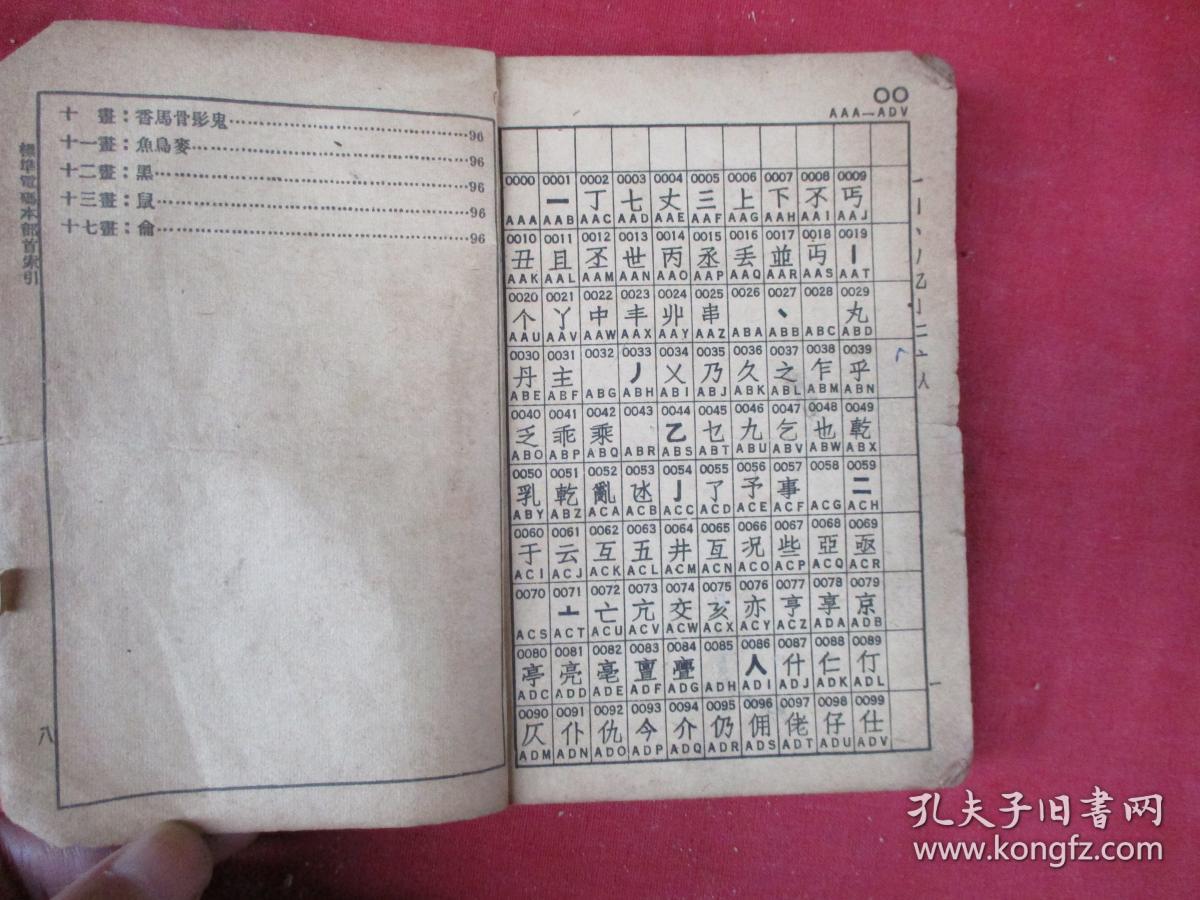 標準電碼本部首索引
十　畫：香馬骨髟鬼……96
十一畫：魚鳥麥……96
十二畫：黑……96
十三畫：鼠……96
十七畫：龠……96
八
00
AAA—ADV
0000 0001 0002 0003 0004 0005 0006 0007 0008 0009
一 丁 七 丈 三 上 下 不 丐
AAA AAB AAC AAD AAE AAF AAG AAH AAI AAJ
0010 0011 0012 0013 0014 0015 0016 0017 0018 0019
丑 且 丕 世 丙 丞 丢 並 丏 丨
AAK AAL AAM AAN AAO AAP AAQ AAR AAS AAT
0020 0021 0022 0023 0024 0025 0026 0027 0028 0029
个 丫 中 丰 丱 串 丶 丸
AAU AAV AAW AAX AAY AAZ ABA ABB ABC ABD
0030 0031 0032 0033 0034 0035 0036 0037 0038 0039
丹 主 丿 乂 乃 久 之 乍 乎
ABE ABF ABG ABH ABI ABJ ABK ABL ABM ABN
0040 0041 0042 0043 0044 0045 0046 0047 0048 0049
乏 乖 乘 乙 乜 九 乞 也 乾
ABO ABP ABQ ABR ABS ABT ABU ABV ABW ABX
0050 0051 0052 0053 0054 0055 0056 0057 0058 0059
乳 乾 亂 亅 了 予 事 二
ABY ABZ ACA ACB ACC ACD ACE ACF ACG ACH
0060 0061 0062 0063 0064 0065 0066 0067 0068 0069
于 云 互 五 井 亙 况 些 亞 亟
ACI ACJ ACK ACL ACM ACN ACO ACP ACQ ACR
0070 0071 0072 0073 0074 0075 0076 0077 0078 0079
亠 亡 亢 交 亥 亦 亨 享 京
ACS ACT ACU ACV ACW ACX ACY ACZ ADA ADB
0080 0081 0082 0083 0084 0085 0086 0087 0088 0089
亭 亮 亳 亶 亹 人 什 仁 仃
ADC ADD ADE ADF ADG ADH ADI ADJ ADK ADL
0090 0091 0092 0093 0094 0095 0096 0097 0098 0099
仄 仆 仇 今 介 仍 佣 佬 仔 仕
ADM ADN ADO ADP ADQ ADR ADS ADT ADU ADV
一丨丶丿乙亅二亠人
一
孔夫子旧書网
www.kongfz.com